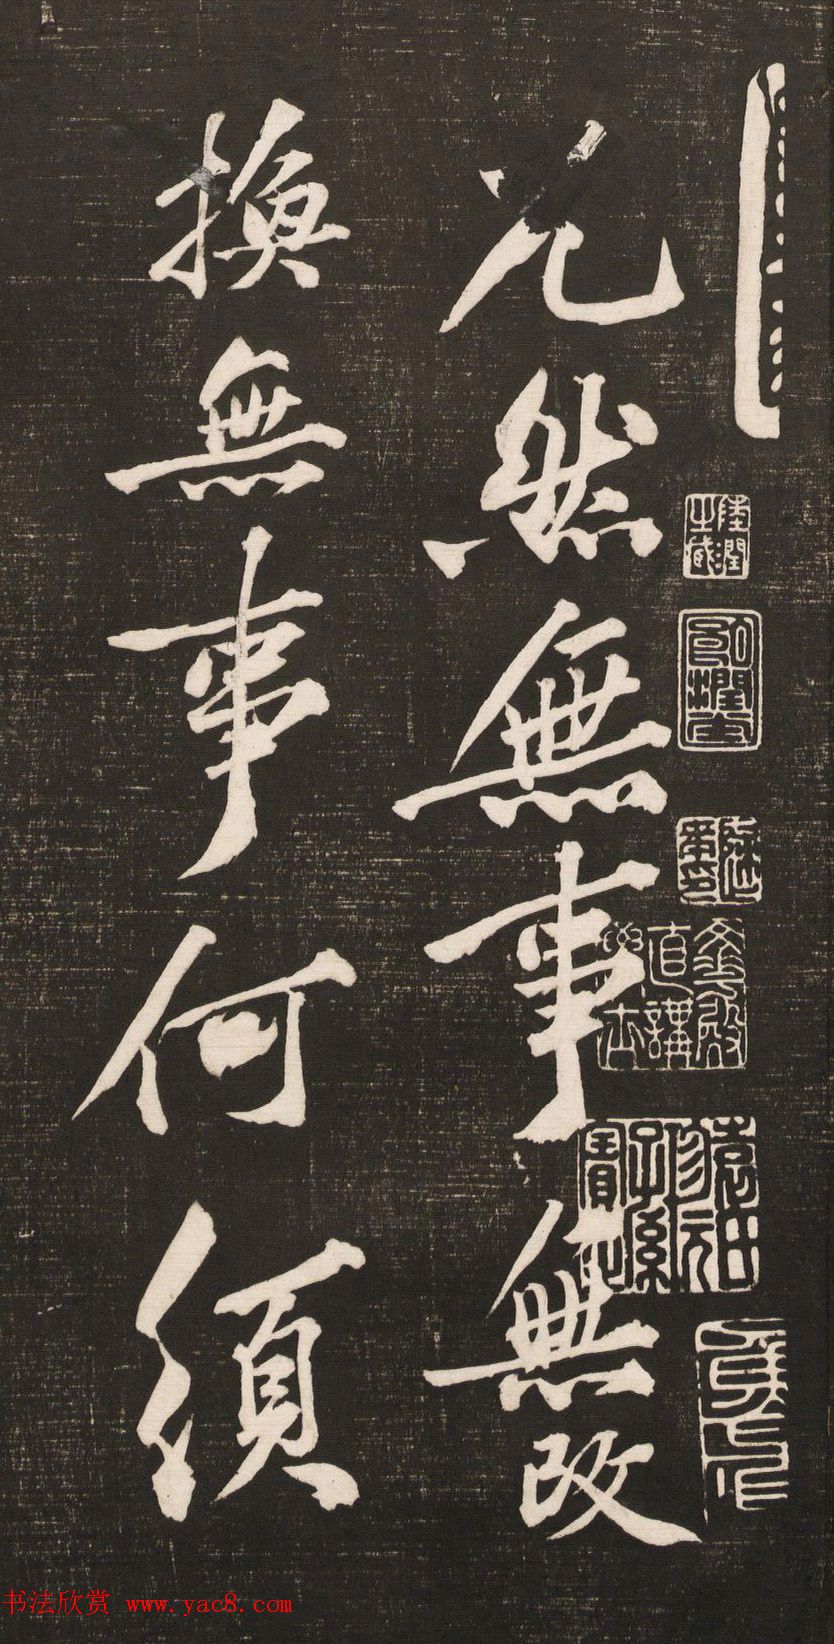 兀然無事無改
換無事何須
陸潤之藏
书法欣赏 www.yac8.com